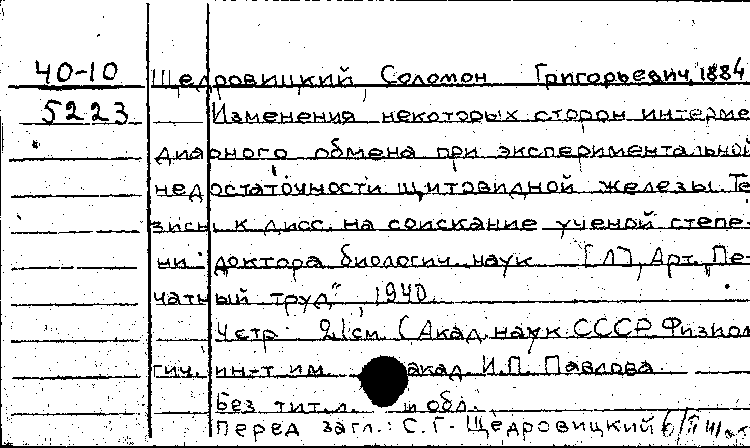 40-10 Щедровицкий, Соломон Григорьевич, 1884
5223 Изменения некоторых сторон интерме-
диарного обмена при экспериментальной
недостаточности щитовидной железы. Те-
зисы к дисс. на соискание ученой степе-
ни доктора биологич. наук [Л], Арт. "Пе-
чатный труд", 1940.
4 стр. 21см. (Акад. наук СССР. Физиоло-
гич. ин-т им. акад. И.П. Павлова.
Без тит. л. и обл.
Перед загл.: С.Г. Щедровицкий